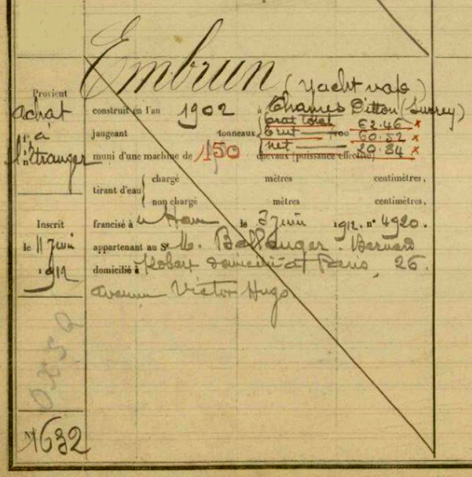 Embrun (yacht vap)
Provient
achat
à
l'étranger
construit en l'an 1902 à Thames Ditton (Surrey)
jaugeant tonneaux
brat total 62.46 x
brut 60.52 x
net 20.84 x
muni d'une machine de 150 chevaux (puissance effective)
tirant d'eau
chargé mètres centimètres,
non chargé mètres centimètres,
Inscrit
le 11 Juin
1912
francisé à le 3 Juin 1912. n° 4920.
appartenant au Sr M. Ballanger Bernard
domicilié à Robert domicilié à Paris, 26.
avenue Victor Hugo
1632